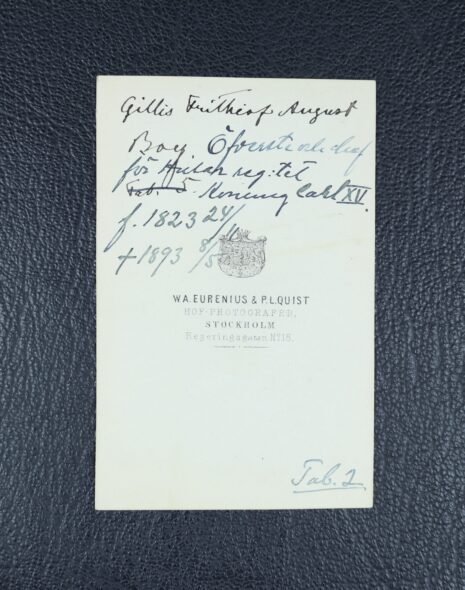 Gillis Frithiof August
Boy Öfverste och chef
för Husar reg:tet
Tab. 5 Konung Carl XV.
f. 1823 24/11
+ 1893 8/5
W.A. EURENIUS & P.L. QUIST
HOF-PHOTOGRAFER,
STOCKHOLM
Regeringsgatan Nº 18.
Tab. 2